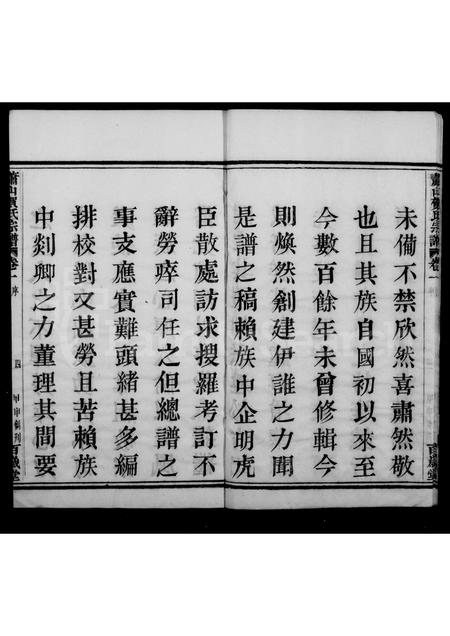 未備不禁欣然喜肅然敬
也且其族自國初以來至
今數百餘年未曾修輯今
則煥然創建伊誰之力聞
是譜之稿賴族中企明虎
臣散處訪求搜羅考訂不
辭勞瘁司任之但總譜之
事支應實難頭緒甚多編
排校對又甚勞且苦賴族
中剡卿之力董理其間要
蕭山賀氏宗譜 卷一 序 四 甲申輯刊 百歲堂